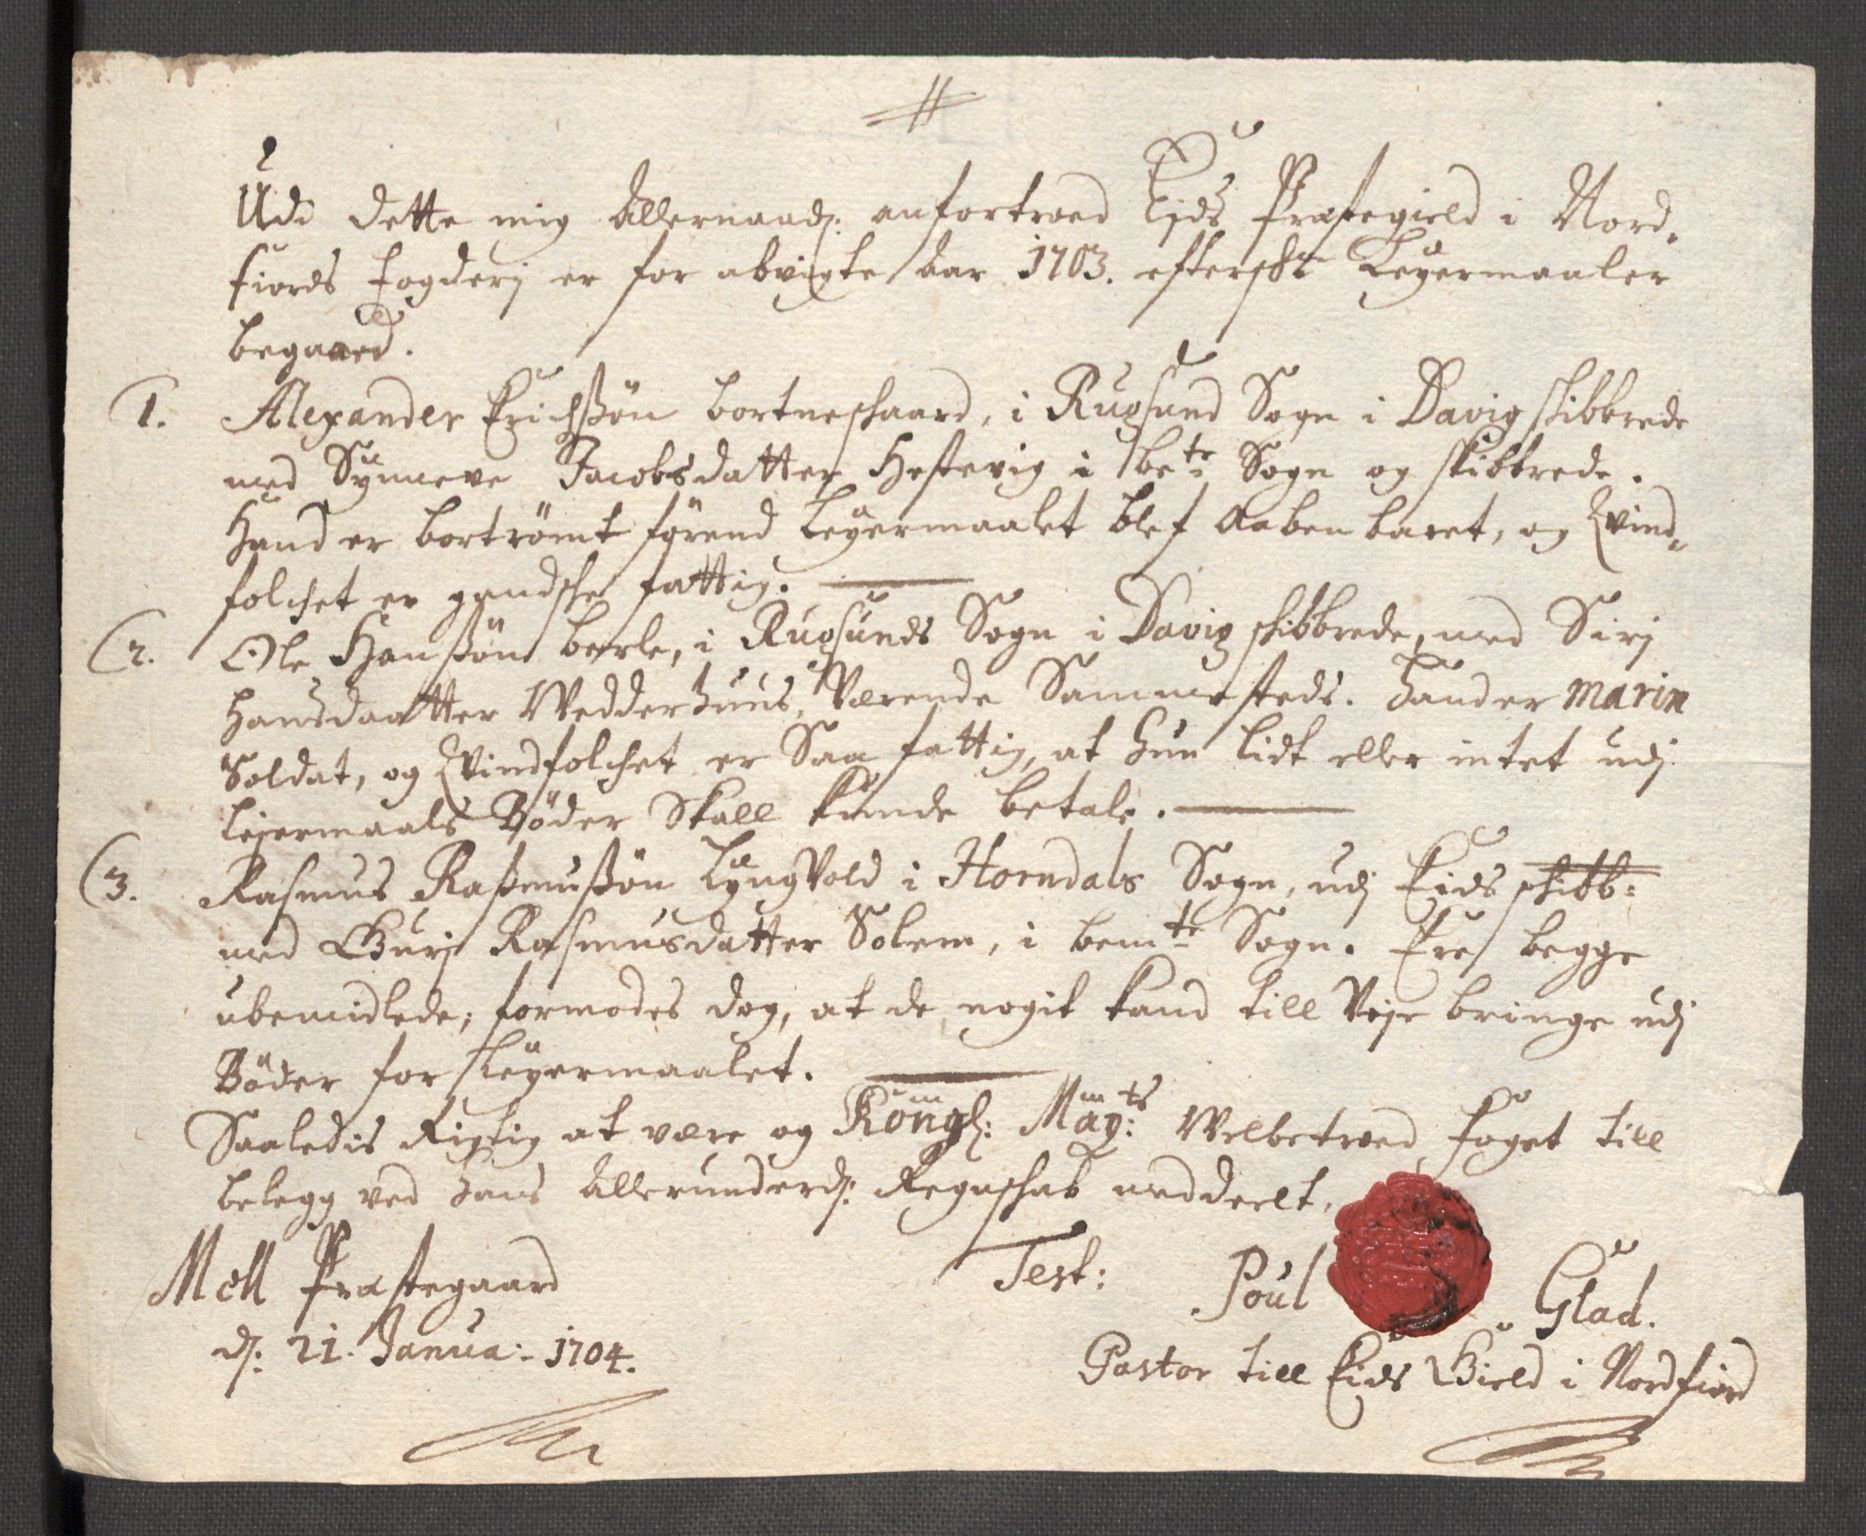 Udi dette mig Allernaadl: anfortroed Eids Præstegield i Nord-
fiords fogderj er for abvigte Aar 1703. effterskr: Leyermaaler
begaaed.
1. Alexander Erichssøn Bortneschaard, i Rugsund Sogn i Davig skibbrede
med Synneve Jacobsdatter Hestevig i bete Sogn og skibbrede.
Hand er bortrömt förend Leyermaalet blef Aabenbaret, og Qvind-
folchet er gandsche fattig.
2. Ole Hanssøn Berle, i Rugsunds Sogn i Davig skibbrede, med Sirj
Hansdaatter Wedderhuus, Værende Sammesteds. Hand er marin
Soldat, og Qvindfolchet er Saa fattig, at hun lidt eller intet udj
Lejermaals Bøder Skall kunde betale.
3. Rasmus Rasmussøn LyngVold i Horndals Sogn, udj Eids schibb:
med Gurj Rasmusdatter Solem, i bemte Sogn. Ere begge
ubemidlede, formodes dog, at de nogit kand till Veje bringe udj
Bøder for Leyermaalet.
Saaledis Rigtig at være og Köngl: Mayts: Welbetroed foget till
belegg ved hans Allerunderdl: Regnschab meddeelt,
Moll Præstegaard Test: Poul Glad.
dl: 21. Janua: 1704. Pastor till Eids Gield i Nordfiord